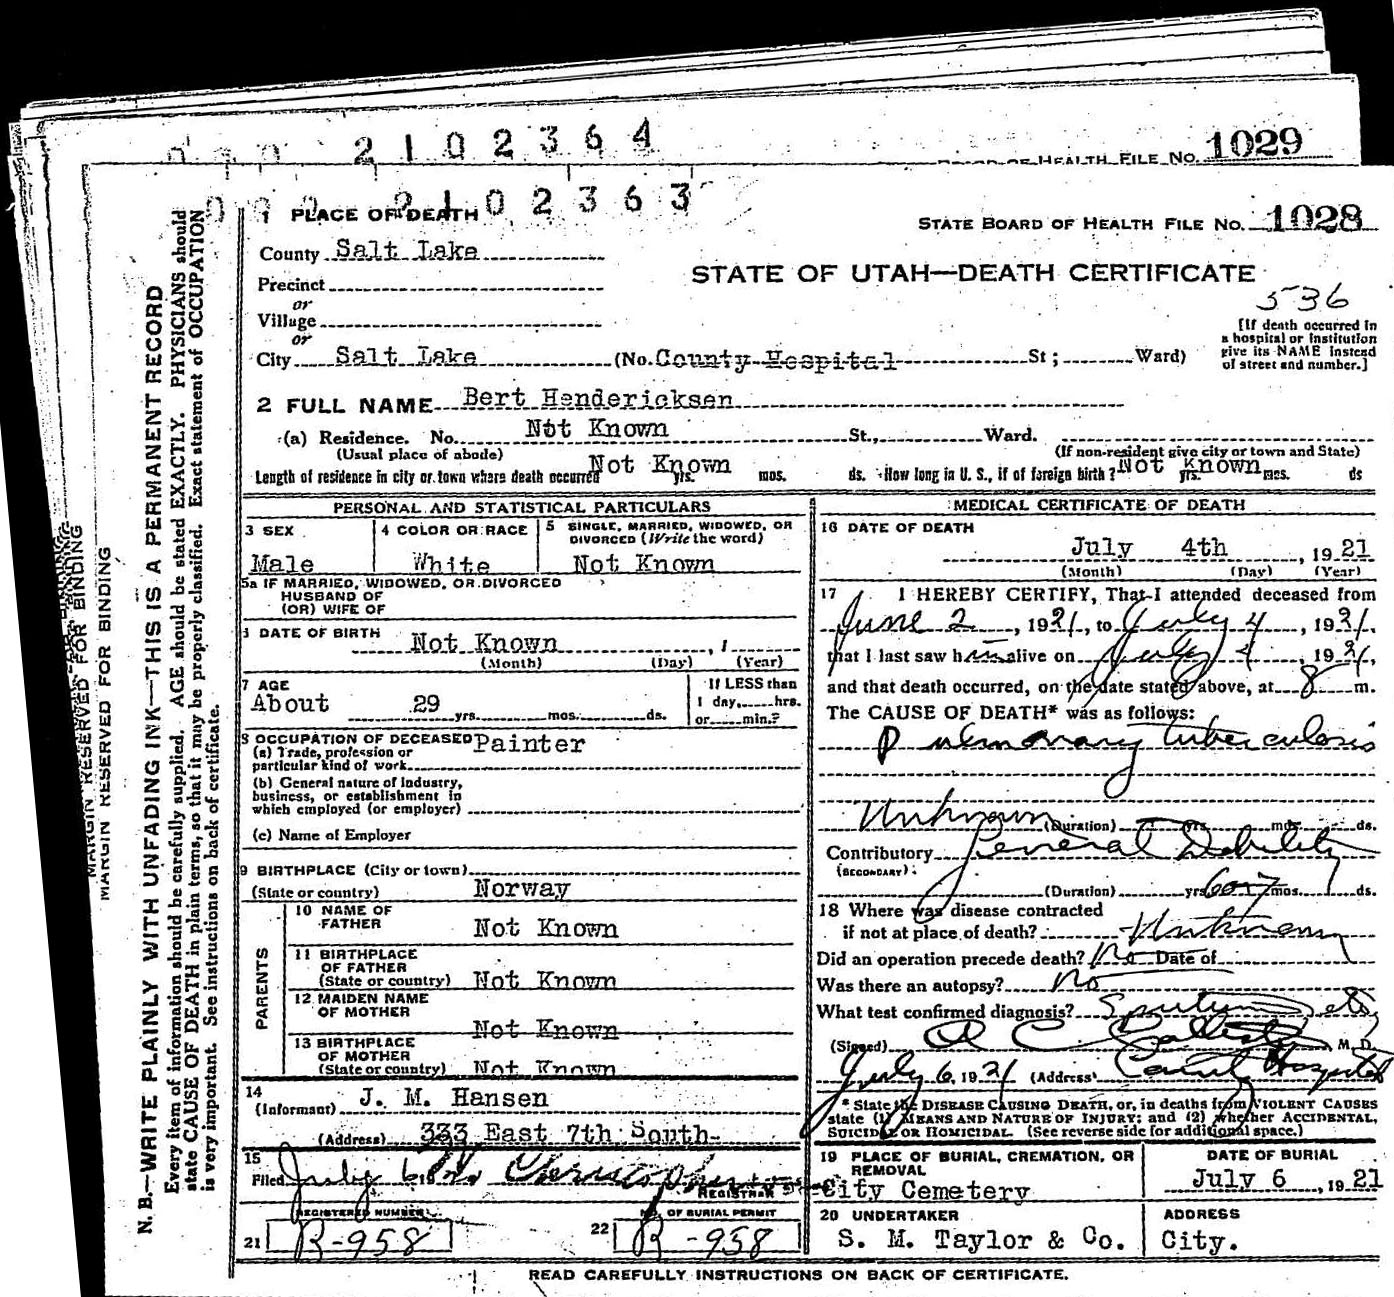 2102364
BOARD OF HEALTH FILE NO. 1029
2102363
1 PLACE OF DEATH
STATE BOARD OF HEALTH FILE NO. 1028
County Salt Lake
STATE OF UTAH—DEATH CERTIFICATE
Precinct
536
or
Village
or
[If death occurred in
a hospital or institution
give its NAME instead
of street and number.]
City Salt Lake (No. County Hospital St; Ward)
2 FULL NAME Bert Hendericksen
(a) Residence. No. Not Known St., Ward.
(Usual place of abode) (If non-resident give city or town and State)
Length of residence in city or town where death occurred Not Known yrs. mos. ds. How long in U. S., if of foreign birth? Not Known yrs. mos. ds
PERSONAL AND STATISTICAL PARTICULARS
3 SEX 4 COLOR OR RACE 5 SINGLE, MARRIED, WIDOWED, OR
DIVORCED (Write the word)
Male White Not Known
5a IF MARRIED, WIDOWED, OR DIVORCED
HUSBAND OF
(OR) WIFE OF
DATE OF BIRTH Not Known , 1
(Month) (Day) (Year)
7 AGE If LESS than
About 29 yrs. mos. ds. 1 day, hrs.
or min.?
8 OCCUPATION OF DECEASED Painter
(a) Trade, profession or
particular kind of work
(b) General nature of industry,
business, or establishment in
which employed (or employer)
(c) Name of Employer
9 BIRTHPLACE (City or town)
(State or country) Norway
PARENTS
10 NAME OF
FATHER Not Known
11 BIRTHPLACE
OF FATHER
(State or country) Not Known
12 MAIDEN NAME
OF MOTHER
Not Known
13 BIRTHPLACE
OF MOTHER
(State or country) Not Known
14
(Informant) J. M. Hansen
(Address) 333 East 7th South
15
Filed July 6
REGISTRAR
REGISTERED NUMBER NO. OF BURIAL PERMIT
21 R-958 22 R-958
MEDICAL CERTIFICATE OF DEATH
16 DATE OF DEATH
July 4th , 1921
(Month) (Day) (Year)
17 I HEREBY CERTIFY, That I attended deceased from
June 2 , 1921, to July 4 , 1921,
that I last saw him alive on July 4 , 1921,
and that death occurred, on the date stated above, at 8 m.
The CAUSE OF DEATH* was as follows:
Pulmonary tuberculosis
Unknown (Duration) yrs mos. ds.
Contributory General Debility
(SECONDARY)
(Duration) yrs 6 or 7 mos. ds.
18 Where was disease contracted
if not at place of death? Unknown
Did an operation precede death? No Date of
Was there an autopsy? No
What test confirmed diagnosis? Sputum
(Signed) M. D.
July 6, 1921 (Address) County Hospital
* State the DISEASE CAUSING DEATH, or, in deaths from VIOLENT CAUSES
state (1) MEANS AND NATURE OF INJURY; and (2) whether ACCIDENTAL,
SUICIDAL OR HOMICIDAL. (See reverse side for additional space.)
19 PLACE OF BURIAL, CREMATION, OR
REMOVAL
City Cemetery
DATE OF BURIAL
July 6 , 1921
20 UNDERTAKER ADDRESS
S. M. Taylor & Co. City.
READ CAREFULLY INSTRUCTIONS ON BACK OF CERTIFICATE.
MARGIN RESERVED FOR BINDING
MARGIN RESERVED FOR BINDING
N. B.—WRITE PLAINLY WITH UNFADING INK—THIS IS A PERMANENT RECORD
Every item of information should be carefully supplied. AGE should be stated EXACTLY. PHYSICIANS should
state CAUSE OF DEATH in plain terms, so that it may be properly classified. Exact statement of OCCUPATION
is very important. See instructions on back of certificate.